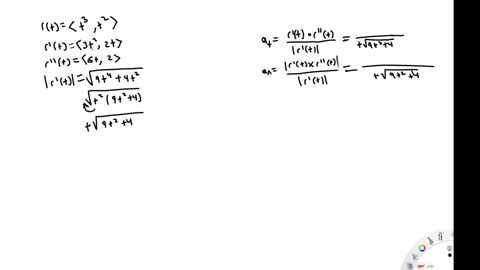 r(t) = ⟨t³, t²⟩
r'(t) = ⟨3t², 2t⟩
r''(t) = ⟨6t, 2⟩
|r'(t)| = √(9t⁴ + 4t²)
√(t²(9t²+4))
t√(9t²+4)
a_t = (r'(t) • r''(t)) / |r'(t)| = ___ / (t√(9t²+4))
a_n = |r'(t) × r''(t)| / |r'(t)| = ___ / (t√(9t²+4))